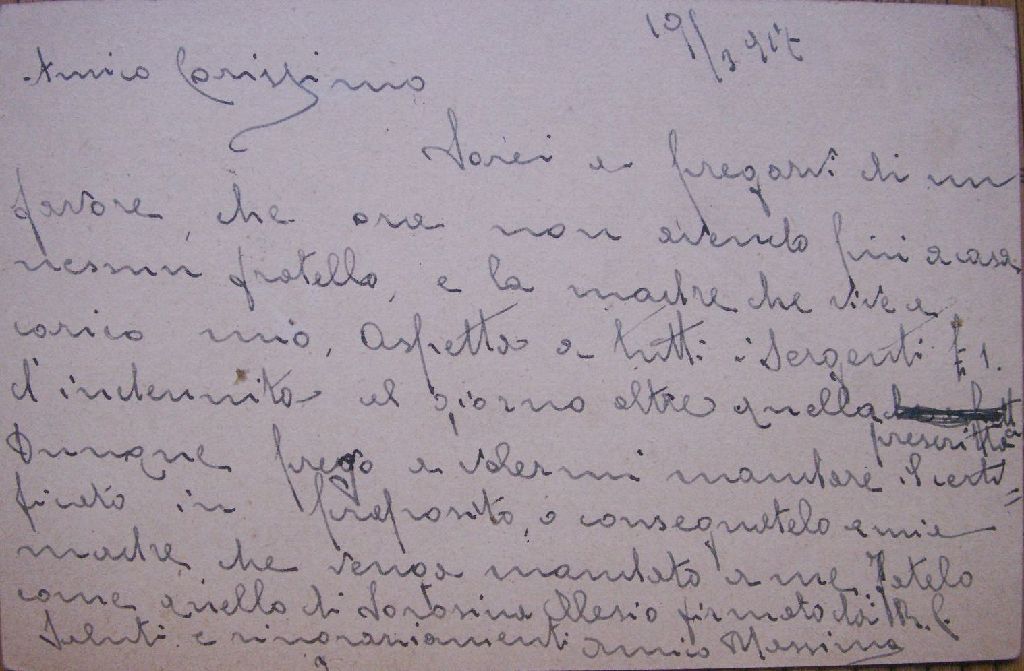 19/3 917
Amico Carissimo
Sarei a pregarvi di un
favore, che ora non avendo più a casa
nessun fratello, e la madre che vive a
carico mio, Aspetta a tutti i Sergenti £ 1.
d'indennità al giorno oltre quella
prescritta
Dunque prego a volermi mandare il certi=
ficato in proposito, o consegnatelo a mia
madre che venga mandato a me Fatelo
come quello di Alesio firmato dai R. C.
Saluti e ringraziamenti amico Messina